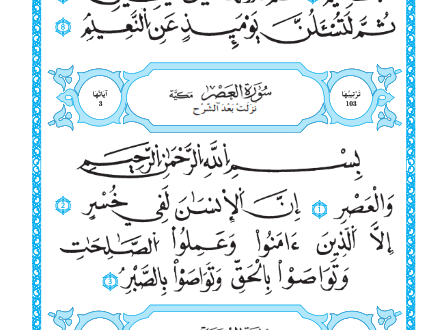 ثُمَّ لَتُسْـَٔلُنَّ يَوْمَئِذٍ عَنِ ٱلنَّعِيمِ ٨
ترتيبها 103 سُورَةُ العَصْرِ مَكيَّة آياتها 3
نزلت بعد الشرح
بِسْمِ ٱللَّهِ ٱلرَّحْمَٰنِ ٱلرَّحِيمِ
وَٱلْعَصْرِ ١ إِنَّ ٱلْإِنسَٰنَ لَفِى خُسْرٍ ٢
إِلَّا ٱلَّذِينَ ءَامَنُوا۟ وَعَمِلُوا۟ ٱلصَّٰلِحَٰتِ
وَتَوَاصَوْا۟ بِٱلْحَقِّ وَتَوَاصَوْا۟ بِٱلصَّبْرِ ٣